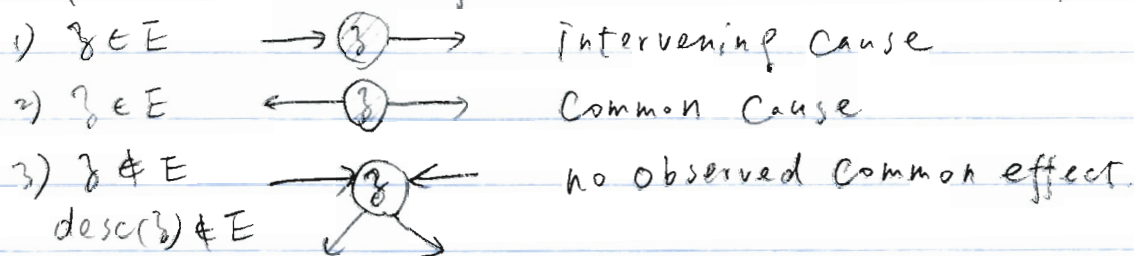 1) z ∈ E → z → intervening cause
2) z ∈ E ← z → Common Cause
3) z ∉ E → z ← no observed common effect.
desc(z) ∉ E